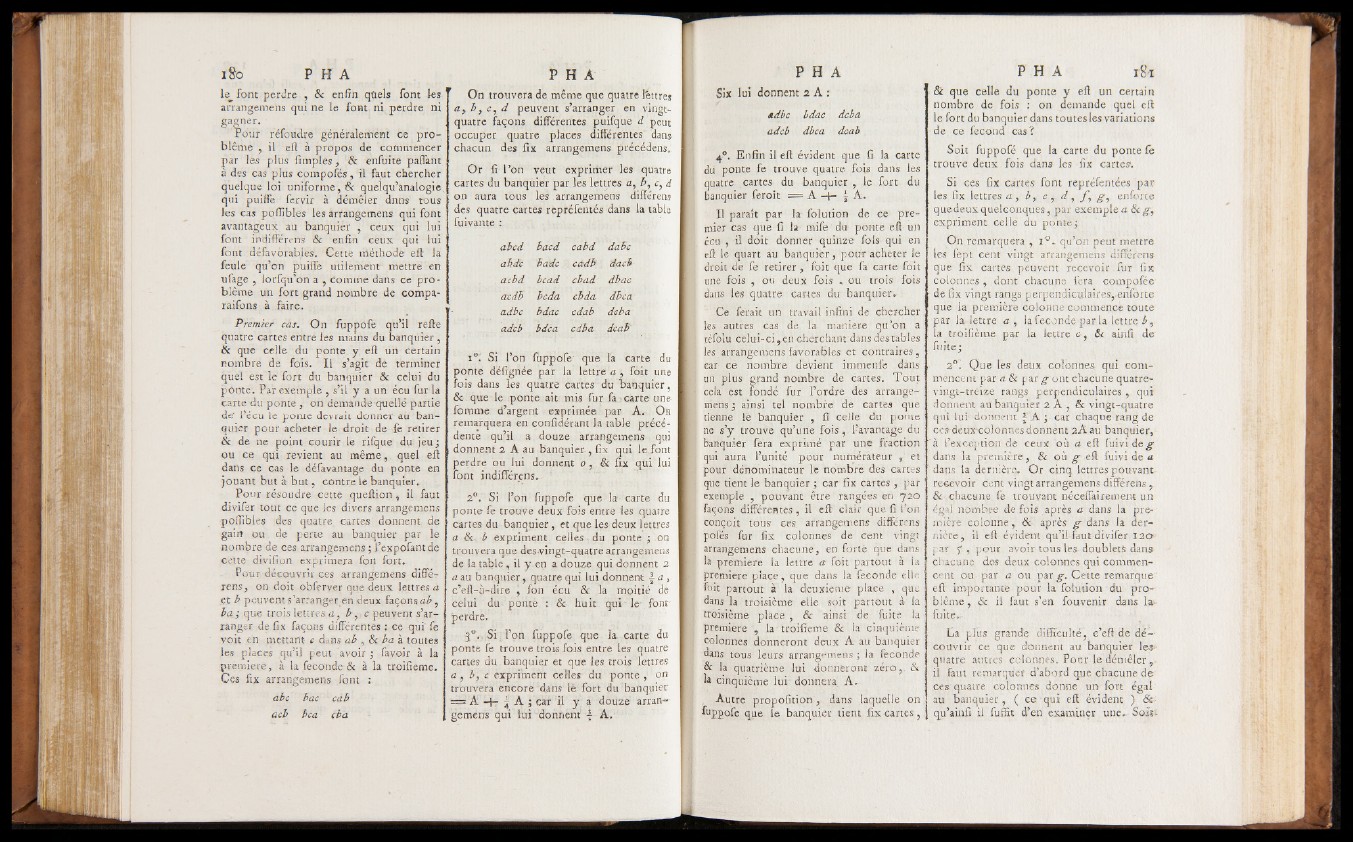 180 P H A
le font perdre , & enfin qûels font les
arrangemens qui ne le font ni perdre ni
gagner.
Pour réfoudre généralement ce pro-
blême , il eft à propos de commencer
par les plus fimples, & enfuite paffant
à des cas plus compofés, il faut chercher
quelque loi uniforme, & quelqu'analogie
qui puiffe fervir à démêler dans tous
les cas poffibles les arrangemens qui font
avantageux au banquier , ceux qui lui
font indifférens & enfin ceux qui lui
font défavorables. Cette méthode eft la
feule qu'on puiffe utilement mettre en
ufage , lorfqu'on a , comme dans ce pro-
blême un fort grand nombre de compa-
raifons à faire.
Premier cas. On fuppofe qu'il refte
quatre cartes entre les mains du banquier,
& que celle du ponte y eft un certain
nombre de fois. Il s'agit de terminer
quel est le fort du banquier & celui du
ponte. Par exemple , s'il y a un écu fur la
carte du ponte , on demande quelle partie
de l'écu le ponte devrait donner au ban-
quier pour acheter le droit de fe retirer
& de ne point courir le rifque du jeu;
ou ce qui revient au même, quel eft
dans ce cas le défavantage du ponte en
jouant but à but, contre le banquier.
Pour résoudre cette queftion, il faut
divifer tout ce que les divers arrangemens
poffibles des quatre cartes donnent de
gain ou de perte au banquier par le
nombre de ces arrangemens; l'expofant de
cette divifion exprimera fon fort.
Pour découvrir ces arrangemens diffé-
rens, on doit obferver que deux lettres a
et b peuvent s'arranger en deux façons ab,
ba; que trois lettres a, b, c peuvent s'ar-
ranger de fix façons différentes : ce qui fe
voit en mettant c dans ab , & ba à toutes
les places qu'il peut avoir ; favoir à la
premiere, à la feconde & à la troifième.
Ces fix arrangemens font :
abc bac cab
acb bca cba
P H A
On trouvera de même que quatre lettres
a, b, c, d peuvent s'arranger en vingt-
quatre façons différentes puifque d peut
occuper quatre places différentes dans
chacun des fix arrangemens précédens.
Or fi l'on veut exprimer les quatre
cartes du banquier par les lettres a, b, c, d
on aura tous les arrangemens différens
des quatre cartes repréfentés dans la table
fuivante :
abcd bacd cabd dabc
abdc badc cadb dacb
acbd bcad cbad dbac
acdb bcda cbda dbca
adbc bdac cdab dcba
adcb bdca cdba dcab
1°. Si l'on fuppofe que la carte du
ponte défignée par la lettre a , foit une
fois dans les quatre cartes du banquier,
& que le ponte ait mis fur fa carte une
fomme d'argent exprimée par A. On
remarquera en confidérant la table précé-
dente qu'il a douze arrangemens qui
donnent 2 A au banquier , fix qui le font
perdre ou lui donnent o, & fix qui lui
font indifférens.
2°. Si l'on fuppofe que la carte du
ponte fe trouve deux fois entre les quatre
cartes du banquier, et que les deux lettres
a & b expriment celles du ponte ; on
trouvera que des vingt-quatre arrangemens
de la table, il y en a douze qui donnent 2
a au banquier, quatre qui lui donnent a,
c'eft-à-dire , fon écu & la moitié de
celui du ponte : & huit qui le font
perdre.
3°. Si l'on fuppofe que la carte du
ponte fe trouve trois fois entre les quatre
cartes du banquier et que les trois lettres
a, b, c expriment celles du ponte, on
trouvera encore dans le fort du banquier
= A + A ; car il y a douze arran-
gemens qui lui donnent A.
P H A
Six lui donnent 2 A :
adbc bdac dcba
adcb dbca dcab
4°. Enfin il eft évident que fi la carte
du ponte fe trouve quatre fois dans les
quatre cartes du banquier , le fort du
banquier feroit = A + A.
Il paraît par la folution de ce pre-
mier cas que fi la mife du ponte eft un
écu , il doit donner quinze fols qui en
eft le quart au banquier, pour acheter le
droit de fe retirer, foit que fa carte foit
une fois , ou deux fois , ou trois fois
dans les quatre cartes du banquier.
Ce ferait un travail infini de chercher
les autres cas de la maniere qu'on a
réfolu celui-ci, en cherchant dans des tables
les arrangemens favorables et contraires,
car ce nombre devient immenfe dans
un plus grand nombre de cartes. Tout
cela est fondé fur l'ordre des arrange-
mens ; ainsi tel nombre de cartes que
tienne le banquier , fi celle du ponte
ne s'y trouve qu'une fois, l'avantage du
banquier fera exprimé par une fraction
qui aura l'unité pour numérateur , et
pour dénominateur le nombre des cartes
que tient le banquier ; car fix cartes, par
exemple , pouvant être rangées en 720
façons différentes, il eft clair que fi l'on
conçoit tous ces arrangemens différens
polés fur fix colonnes de cent vingt
arrangemens chacune, en forte que dans
la premiere la lettre a foit partout à la
premiere place, que dans la feconde elle
foit partout à la deuxieme place , que
dans la troisième elle soit partout à la
troisième place , & ainsi de fuite la
premiere , la troifieme & la cinquième
colonnes donneront deux A au banquier
dans tous leurs arrangemens ; la feconde
& la quatrième lui donneront zéro, &
la cinquième lui donnera A.
Autre propofition, dans laquelle on
fuppofe que le banquier tient fix cartes,
P H A 181
& que celle du ponte y eft un certain
nombre de fois : on demande quel eft
le fort du banquier dans toutes les variations
de ce fecond cas?
Soit fuppofé que la carte du ponte fe
trouve deux fois dans les fix cartes.
Si ces fix cartes font repréfentées par
les fix lettres a, b, c, d, f, g, enforte
que deux quelconques, par exemple a & g,
expriment celle du ponte;
On remarquera, 1°. qu'on peut mettre
les fept cent vingt arrangemens différens
que fix cartes peuvent recevoir fur fix
colonnes, dont chacune fera compofée
de fix vingt rangs perpendiculaires, enforte
que la première colonne commence toute
par la lettre a , la feconde par la lettre b,
la troifième par la lettre c, & ainfi de
fuite;
2°. Que les deux colonnes qui com-
mencent par a & par g ont chacune quatre-
vingt-treize rangs perpendiculaires , qui
donnent au banquier 2 A , & vingt-quatre
qui lui donnent A ; car chaque rang de
ces deux colonnes donnent 2A au banquier,
à l'exception de ceux où a eft fuivi de g
dans la première, & où g eft fuivi de a
dans la dernière. Or cinq lettres pouvant
recevoir cent vingt arrangemens différens,
& chacune fe trouvant néceffairement un
égal nombre de fois après a dans la pre-
mière colonne, & après g dans la der-
nière, il eft évident qu'il faut divifer 120
par 5, pour avoir tous les doublets dans
chacune des deux colonnes qui commen-
cent ou par a ou par g. Cette remarque
eft importante pour la folution du pro-
blême, & il faut s'en fouvenir dans la
fuite.
La plus grande difficulté, c'eft de dé-
couvrir ce que donnent au banquier les
quatre autres colonnes. Pour le démêler,
il faut remarquer d'abord que chacune de
ces quatre colonnes donne un fort égal
au banquier, ( ce qui eft évident ) &
qu'ainfi il fuffit d'en examiner une. Soit